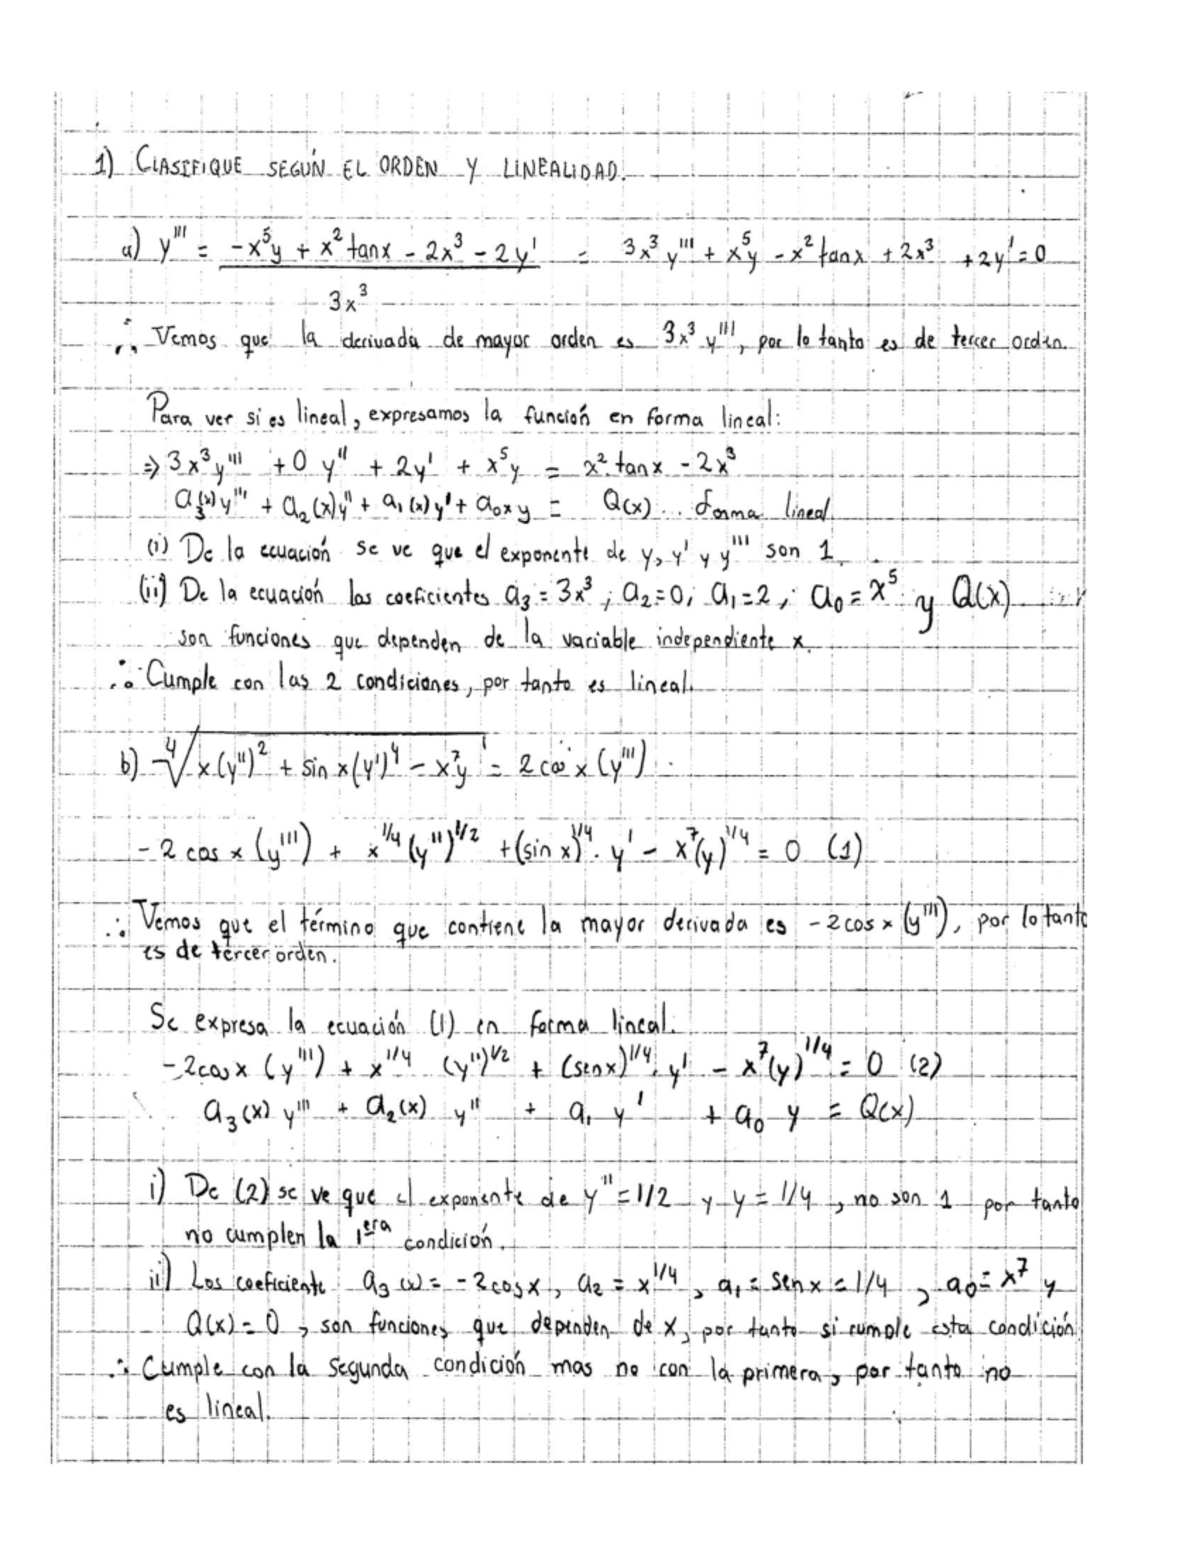 1) CLASIFIQUE SEGÚN EL ORDEN Y LINEALIDAD.
a) y''' = (-x⁵y + x² tanx - 2x³ - 2y') / 3x³ = 3x³ y''' + x⁵y - x² tanx + 2x³ + 2y' = 0
∴ Vemos que la derivada de mayor orden es 3x³ y''', por lo tanto es de tercer orden.
Para ver si es lineal, expresamos la función en forma lineal:
⇒ 3x³y''' + 0 y'' + 2y' + x⁵y = x² tanx - 2x³
a₃(x)y''' + a₂(x)y'' + a₁(x)y' + a₀xy = Q(x)... forma lineal
(i) De la ecuación se ve que el exponente de y, y' y y''' son 1.
(ii) De la ecuación los coeficientes a₃ = 3x³; a₂=0; a₁=2; a₀=x⁵ y Q(x)
son funciones que dependen de la variable independiente x.
∴ Cumple con las 2 condiciones, por tanto es lineal.
b) ⁴√(x(y'')² + sin x(y')⁴ - x⁷y) = 2 cos x (y''')
-2 cos x (y''') + x^1/4 (y'')^1/2 + (sin x)^1/4 · y' - x⁷(y)^1/4 = 0 (1)
∴ Vemos que el término que contiene la mayor derivada es -2cos x (y'''), por lo tanto
es de tercer orden.
Se expresa la ecuación (1) en forma lineal.
-2cosx (y''') + x^1/4 (y'')^1/2 + (senx)^1/4 · y' - x⁷(y)^1/4 = 0 (2)
a₃(x) y''' + a₂(x) y'' + a₁ y' + a₀ y = Q(x)
i) De (2) se ve que el exponente de y''=1/2 y y=1/4, no son 1 por tanto
no cumplen la 1era condición.
ii) Los coeficiente a₃(x)= -2cosx, a₂ = x^1/4, a₁ = senx = 1/4, a₀ = x⁷ y
Q(x)=0, son funciones que dependen de x, por tanto si cumple esta condición
∴ Cumple con la segunda condición mas no con la primera, por tanto no
es lineal.